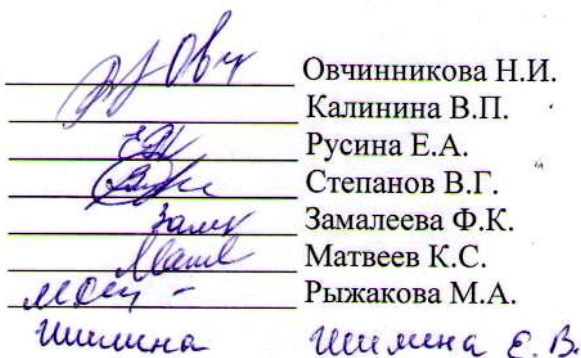 Овчинникова Н.И.
Калинина В.П.
Русина Е.А.
Степанов В.Г.
Замалеева Ф.К.
Матвеев К.С.
Рыжакова М.А.
Шимина Шимина Е.В.